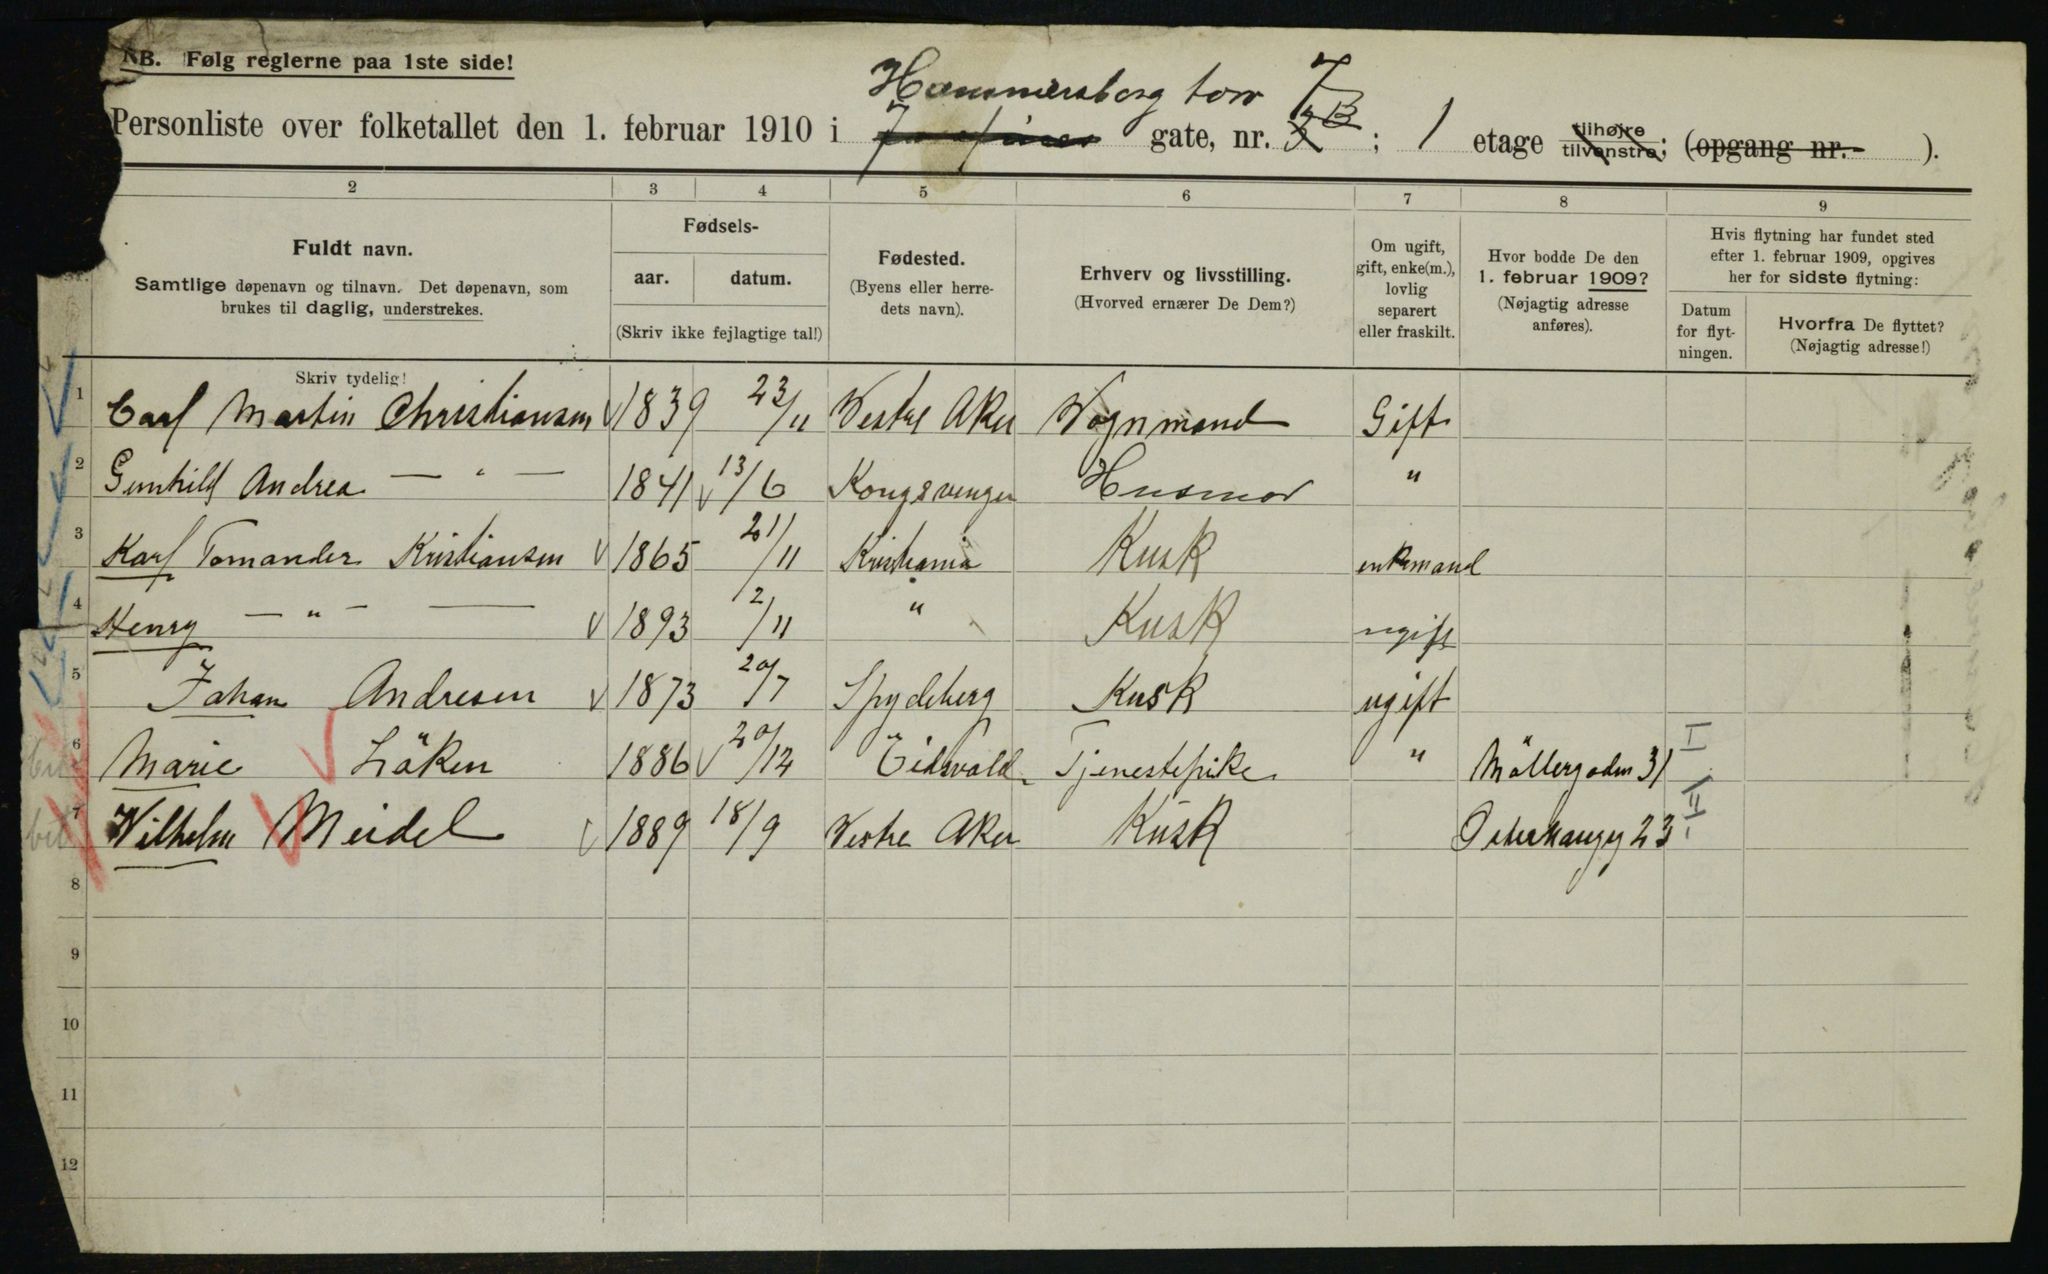 NB. Følg reglerne paa 1ste side!
Hammersborg torv 7
Personliste over folketallet den 1. februar 1910 i Josefines gate, nr. 3 B; 1 etage tilhøjre tilvenstre; (opgang nr. ).
2 3 4 5 6 7 8 9
Fuldt navn.
Samtlige døpenavn og tilnavn. Det døpenavn, som
brukes til daglig, understrekes.
Fødsels-
aar. datum.
(Skriv ikke fejlagtige tal!)
Fødested.
(Byens eller herre-
dets navn).
Erhverv og livsstilling.
(Hvorved ernærer De Dem?)
Om ugift,
gift, enke(m.),
lovlig
separert
eller fraskilt.
Hvor bodde De den
1. februar 1909?
(Nøjagtig adresse
anføres).
Hvis flytning har fundet sted
efter 1. februar 1909, opgives
her for sidste flytning:
Datum
for flyt-
ningen.
Hvorfra De flyttet?
(Nøjagtig adresse!)
Skriv tydelig!
1 Carl Martin Christiansen 1839 23/11 Vestre Aker Vognmand Gift
2 Gunhild Andrea — " — 1841 13/6 Kongsvinger Husmor "
3 Karl Tomander Kristiansen 1865 21/11 Kristiania Kusk enkemand
4 Henry — " — — 1893 2/11 " Kusk ugift
5 Johan Andresen 1873 20/7 Spydeberg Kusk ugift
6 Marie Löken 1886 20/12 Eidsvold Tjenestepike " Möllergaden 31 II
7 Wilhelm Meidel 1889 18/9 Vestre Aker Kusk Osterhausg 23 II
8
9
10
11
12